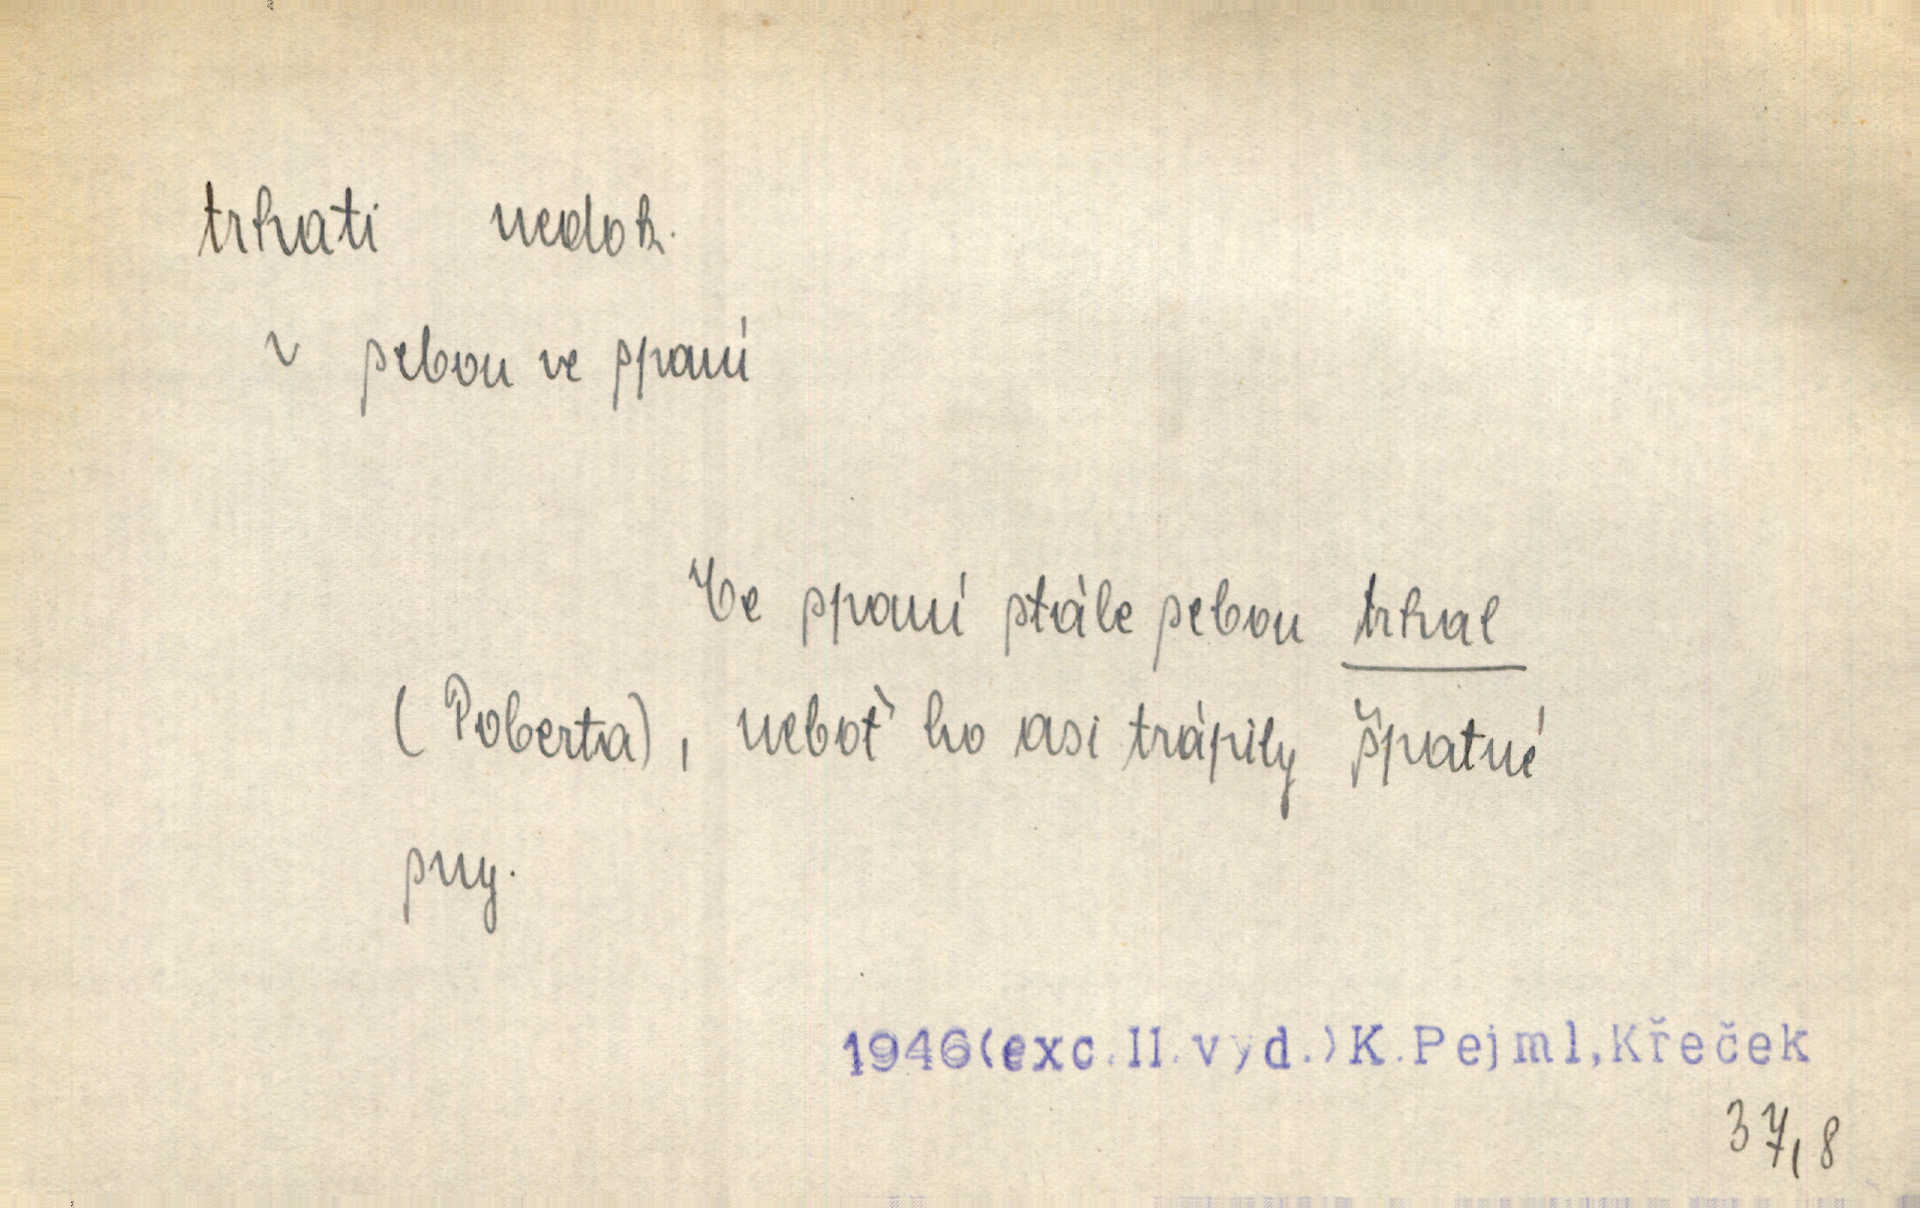 trhati nedok.
~ sebou ve spaní
Ve spaní stále sebou trhal
(Poberta), neboť ho asi trápily špatné
sny.
1946(exc.II.vyd.)K.Pejml,Křeček
37,8